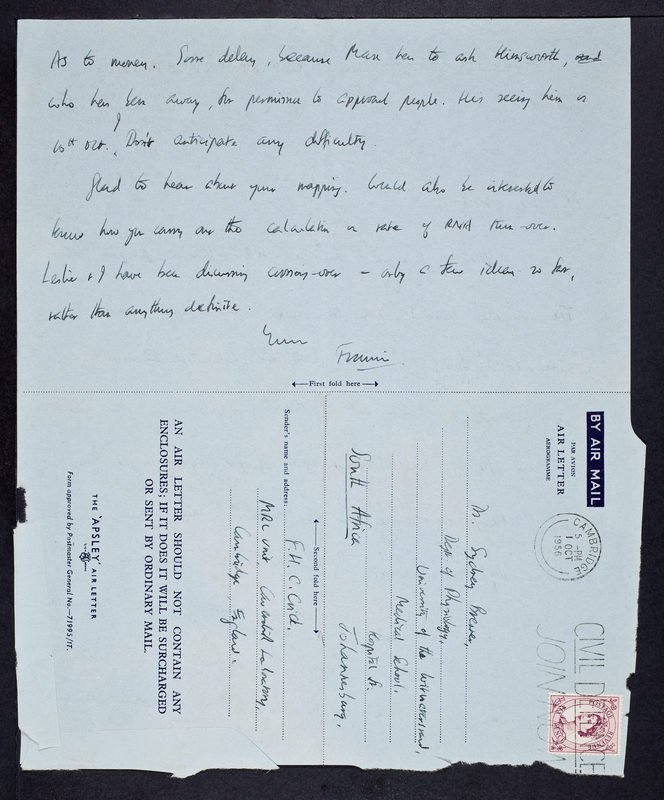 As to money. Some delay, because Max has to ask Himsworth, and
who has been away, for permission to approach people. His seeing him is
10th Oct. Don't anticipate any difficulty.
Glad to hear about your mapping. Would also be interested to
know how you carry out the calculation on rate of RNA turn-over.
Leslie & I have been discussing crossing-over – only a few ideas so far,
rather than anything definite.
Yours
Francis.
First fold here
BY AIR MAIL
PAR AVION
AIR LETTER
AEROGRAMME
CAMBRIDGE
5 - PM
1 OCT
1956
CIVIL DEFENCE
JOIN NOW
Dr. Sydney Brenner,
Dept of Physiology,
University of the Witwatersrand,
Medical School,
Hospital St.
Johannesburg,
South Africa
Second fold here
Sender's name and address:
F. H. C. Crick,
MRC Unit Cavendish Laboratory,
Cambridge England.
AN AIR LETTER SHOULD NOT CONTAIN ANY
ENCLOSURES; IF IT DOES IT WILL BE SURCHARGED
OR SENT BY ORDINARY MAIL.
THE 'APSLEY' AIR LETTER
Form approved by Postmaster General No.—71995/1T.